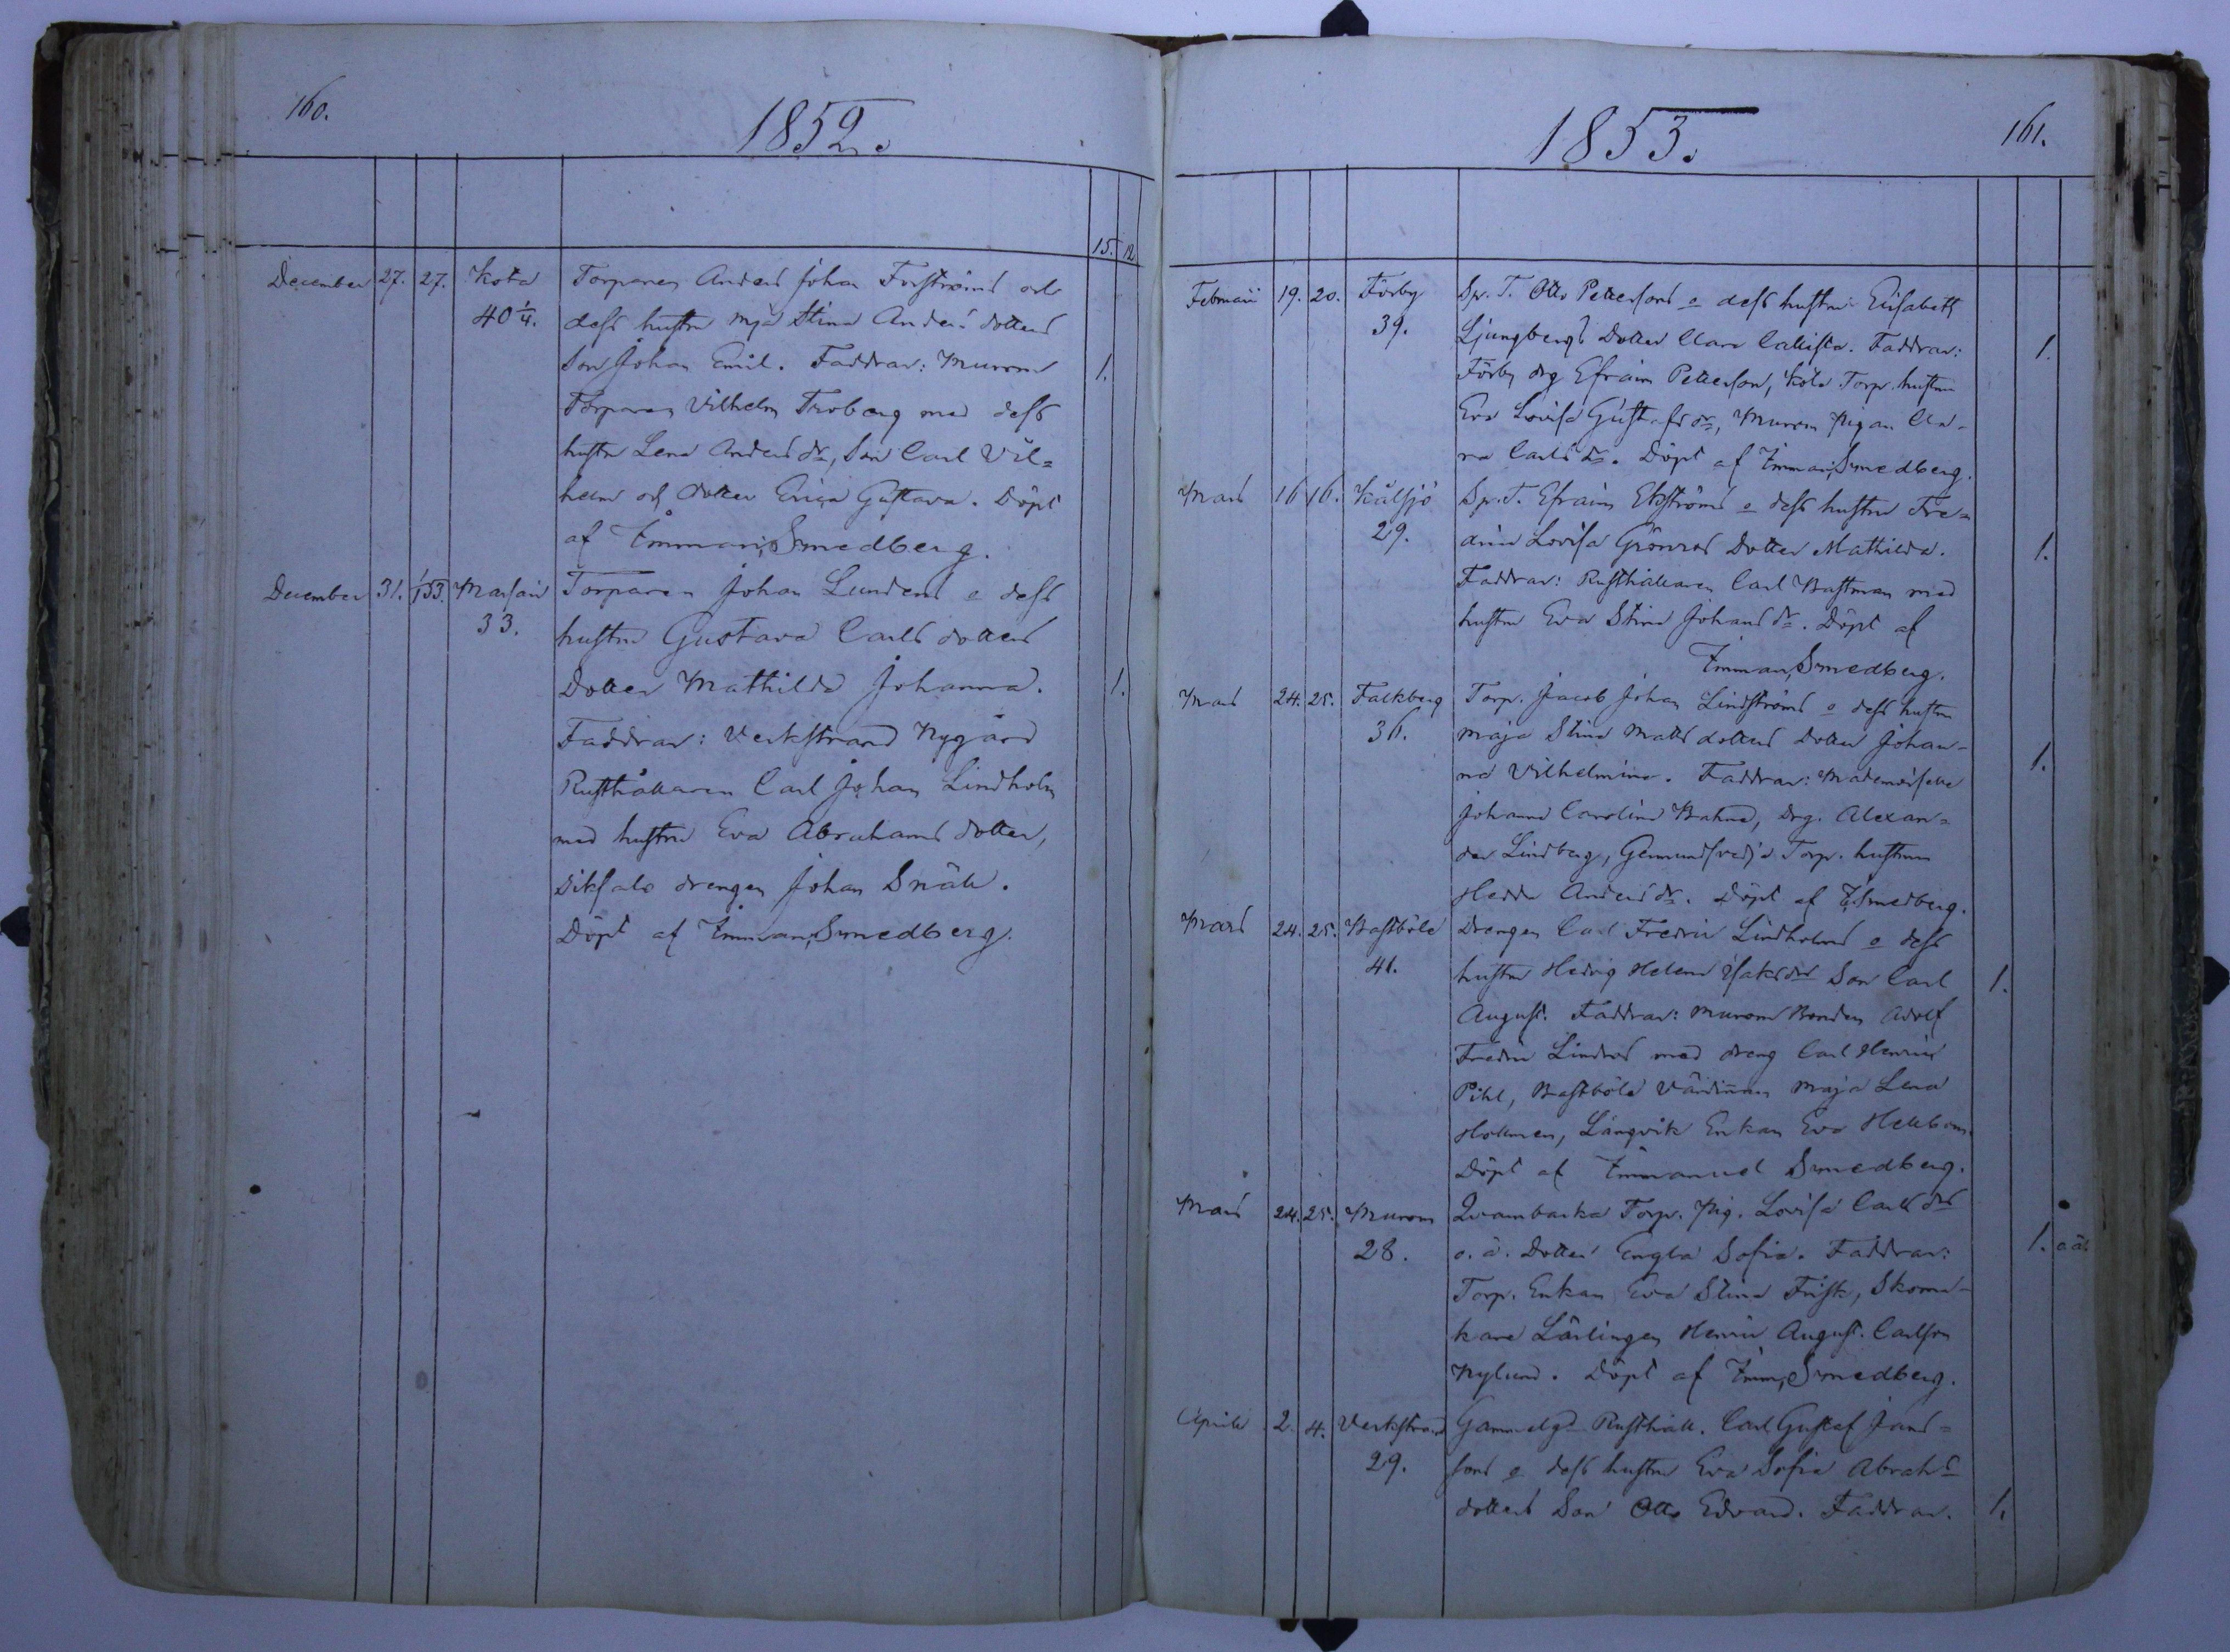 160.
1852.
15. 12.
December 27. 27. Kota Torparen Anders Johan Forströms och
40 1/4. dess hustru Maja Stina Anders dotters
Son Johan Emil. Faddrar: Murom 1.
Torparen Vilhelm Froberg med dess
hustru Lena Anders dr, Son Carl Vil=
helm och dotter Erica Gustava. Döpt
af Imman. Smedberg.
December 31. 1/1 53. Torparen Johan Lundens o dess
33. hustru Gustava Carls dotters
Dotter Mathilda Johanna. 1.
Faddrar: Verkstrand Nygård
Rusthållaren Carl Johan Lindholm
med hustru Eva Abrahams dotter,
drengen Johan Snäll.
Döpt af Imman. Smedberg.
1853.
161.
Februarii 19. 20. Förby Sp. T. Otto Pettersons o dess hustru Elisabeth
39. Ljungbergs Dotter Clara Callista. Faddrar: 1.
Förby drg Efraim Petterson, Torp. hustrun
Eva Lovisa Gustafs dr, Murom Pigan Cla-
ra Carls dr. Döpt af Imman. Smedberg.
Mars 16 16. Kålsjö Sp. T. Efraim Ekströms o dess hustru Fre=
29. Lovisa Grönroos Dotter Mathilda. 1.
Faddrar: Rusthållaren Carl Bastman med
hustru Eva Stina Johans dr. Döpt af
Imman. Smedberg.
Mars 24. 25. Falkberg Torp. Jacob Johan Lindströms o dess hustru
36. Maja Stina Matts dotters Dotter Johan-
na Vilhelmina. Faddrar: Mademoiselle 1.
Johanna Carolina drg. Alexan=
der Lindberg, Torp. hustrun
Hedda Anders dr. Döpt af I. Smedberg.
Mars 24. 25. Bastböle Drengen Carl Fredric Lindholms o dess
41. hustru Hedvig Helena Isaks drs Son Carl 1.
August. Faddrar: Murom Bonden Adolf
Fredric Lindros med dreng Carl Henric
Pihl, Bastböle Värdinnan Maja Lena
Holmen, Långvik Enkan Eva Hellbom.
Döpt af Immanuel Smedberg.
Mars 24. 25. Murom Qvarnbacka Torp. Pig. Lovisa Carls drs
28. o. ä. Dotter Engla Sofia. Faddrar: 1. o äk
Torp. Enkan Eva Stina Frisk, Skoma-
kare Lärlingen Henric August Carlson
Nylund. Döpt af Imm. Smedberg.
Aprili 2. 4. Verkstrand Gammelgd Rusthåll. Carl Gustaf Jans=
29. sons o dess hustru Eva Sofia Abrahs
dotters Son Otto Edvard. Faddrar. 1.